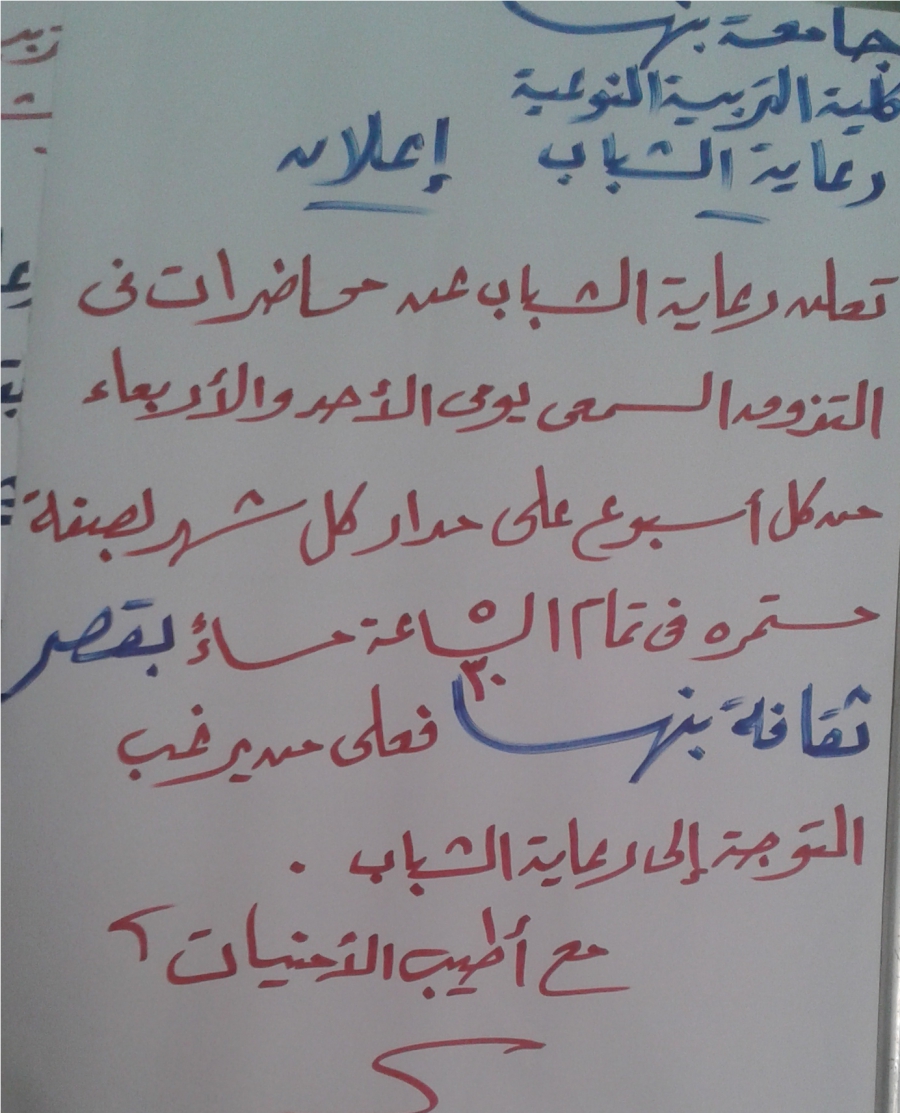 جامعة بنها
كلية التربية النوعية
رعاية الشباب إعلان
تعلن رعاية الشباب عن محاضرات فى
التذوق السمعى يومى الأحد والأربعاء
من كل أسبوع على مدار كل شهر بصفة
مستمره فى تمام الساعة ٥ ٣٠ مساءً بقصر
ثقافة بنها فعلى من يرغب
التوجة إلى رعاية الشباب .
مع أطيب الأمنيات